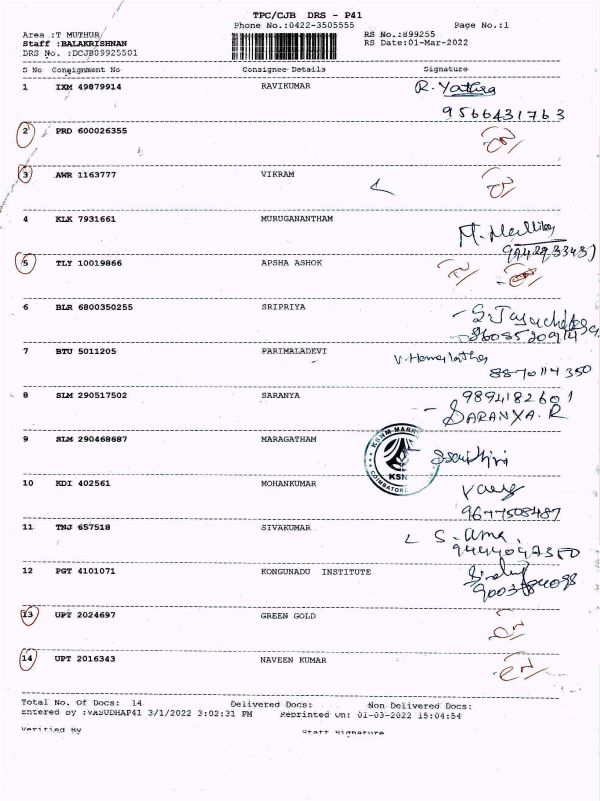 TPC/CJB DRS - P41
Phone No.:0422-3505555 Page No.:1
Area :T MUTHUR RS No.:899255
Staff :BALAKRISHNAN RS Date:01-Mar-2022
DRS No. :DCJB09925501
S No Consignment No Consignee Details Signature
1 IXM 49879914 RAVIKUMAR R. Yathra
9566431763
2 PRD 600026355
3 AWR 1163777 VIKRAM
4 KLK 7931661 MURUGANANTHAM M.
5 TLY 10019866 APSHA ASHOK
6 BLR 6800350255 SRIPRIYA
7 BTU 5011205 PARIMALADEVI V. Hemalatha
8870114350
8 SLM 290517502 SARANYA 9894182601
SARANYA.R
9 SLM 290468687 MARAGATHAM
KSNM MARK
KSN
COIMBATORE
10 KDI 402561 MOHANKUMAR
9677508487
11 TNJ 657518 SIVAKUMAR S. Uma
12 PGT 4101071 KONGUNADU INSTITUTE
13 UPT 2024697 GREEN GOLD
14 UPT 2016343 NAVEEN KUMAR
Total No. Of Docs: 14 Delivered Docs: Non Delivered Docs:
Entered By :VASUDHAP41 3/1/2022 3:02:31 PM Reprinted On: 01-03-2022 15:04:54
Verified By Staff Signature